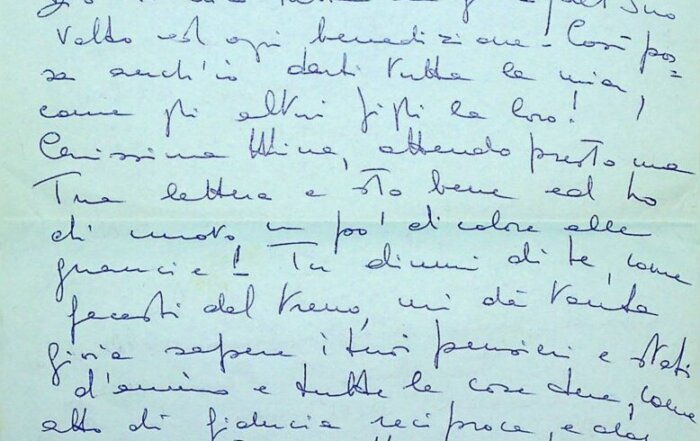 Suo
Volto ed ogni benedizione. Così pos=
sa anch'io darti tutta la mia,
come gli altri figli la loro!
Carissima Mina, attendo presto una
Tua lettera e sto bene ed ho
di nuovo un po' di colore alle
guancie! Tu dimmi di te, come
facesti dal treno, mi dà tanta
gioia sapere i tuoi pensieri e stati
d'animo e tutte le cose tue, come
atto di fiducia reciproca, e